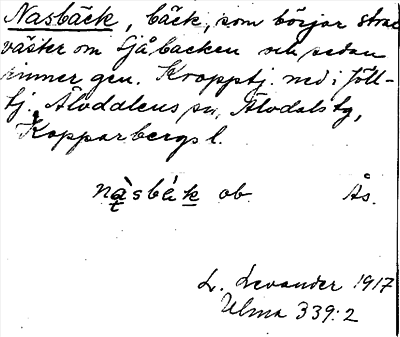 Nasbäck, bäck, som börjar strax
väster om Sjåbacken och sedan
rinner gen. Kropptj. ned i Föll-
tj. Älvdalens sn, Älvdals tg,
Kopparbergs l.
ob. Ås.
L. Levander 1917
Ulma 339:2